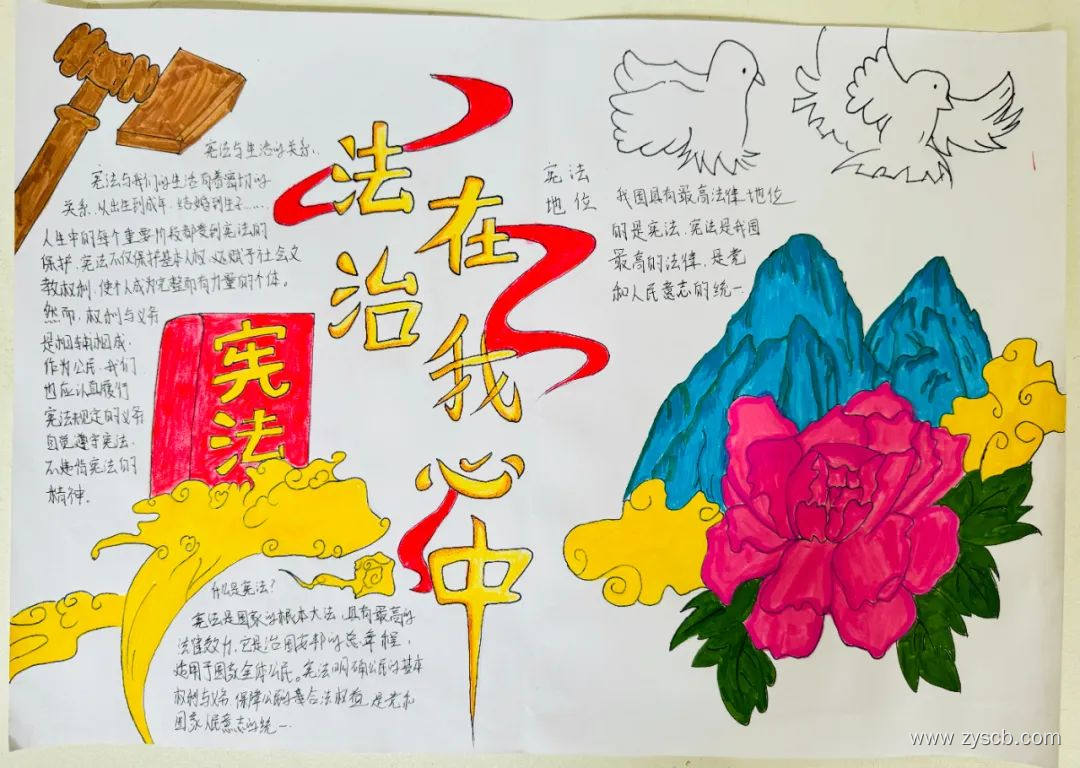 宪法与生活的关系.
宪法与我们的生活有着密切的
关系.从出生到成年.结婚到生子……
人生中的每个重要阶段都受到宪法的
保护.宪法不仅保护基本人权.还赋予社会文
教权利,使个人成为完整而有力量的个体。
然而,权利与义务
是相辅相成.
作为公民.我们
也应认真履行
宪法规定的义务
自觉遵守宪法.
不违背宪法的
精神。
宪法
法治
在我心中
什么是宪法?
宪法是国家的根本大法,具有最高的
法律效力,它是治国安邦的总章程,
适用于国家全体公民。宪法明确公民的基本
权利与义务.保障公民的合法权益.是党和
国家人民意志的统一.
宪法
地位
我国具有最高法律地位
的是宪法.宪法是我国
最高的法律.是党
和人民意志的统一.
www.zyscb.com